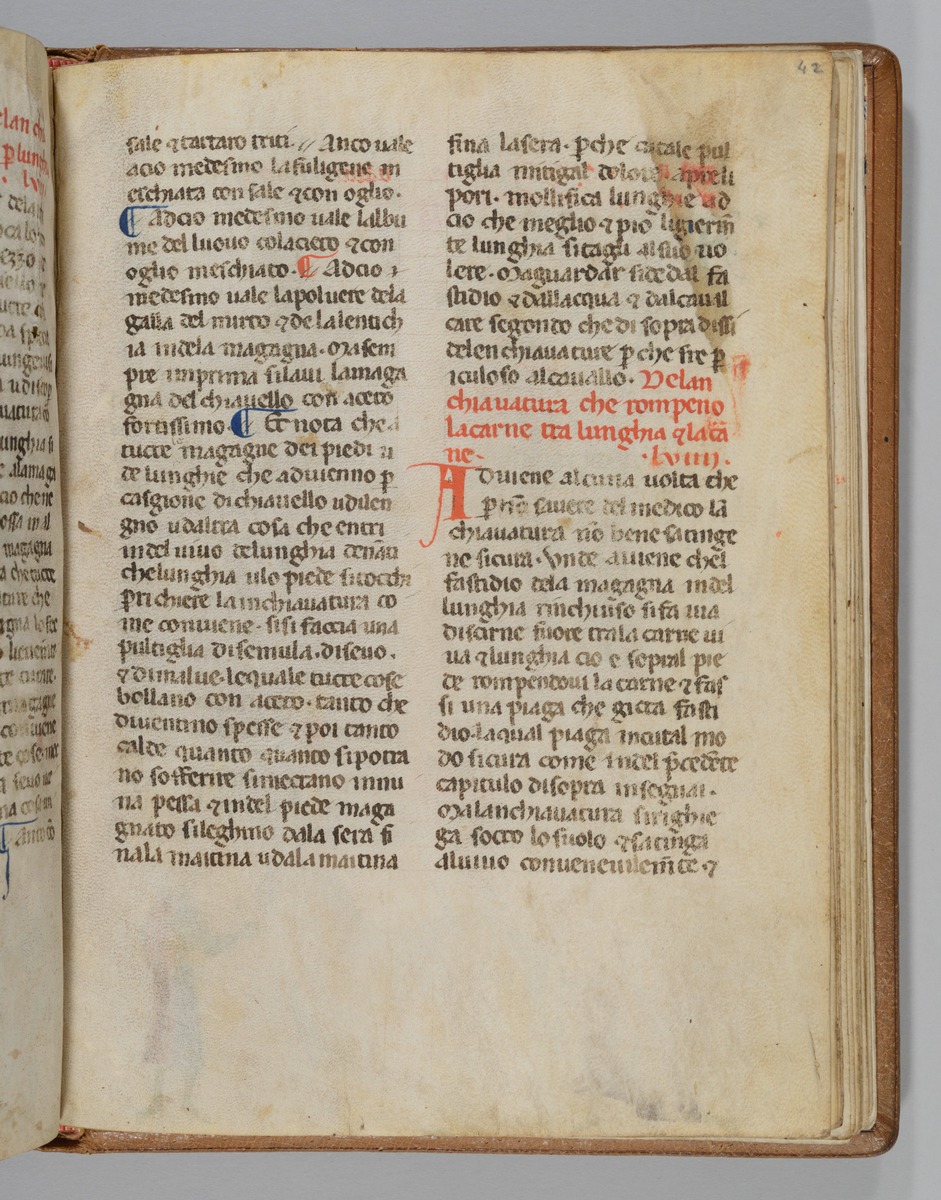 42
sale ⁊ tartaro triti. // Anco uale
acio medesmo la fuligene m
eschiata con sale ⁊ con oglio.
¶ Adcio medesmo uale lalbu
me del luouo colaceto ⁊ con
oglio meschiato. ¶ Adcio
medesmo uale lapoluere dela
galla del mirto ⁊ de lalentich
ia indela magagna. Ma sem
pre imprima silaui lamaga
gna del chiauello con aceto
fortissimo. ¶ Et nota che
tucte magagne dei piedi u
de lunghie che aduienno p̄
casgione di chiauello udilen
gno u daltra cosa che entri
indel uiuo delunghia
chelunghia ulo piede
richiere la inchiauatura co
me conuiene. sisi faccia una
pultiglia disemula. diseuo.
⁊ dimalue. lequale tucte cose
bollano con aceto. tanto che
diuentino spesse ⁊ poi tanto
calde quanto quanto sipotra
no sofferire simectano innu
na pessa ⁊ indel piede maga
gnato sileghino dala sera fi
nala maitina udala maitina
fina lasera. p̄che cutale pul
tiglia mitiga dolore apreli
pori. mollifica lunghie ad
cio che meglio ⁊ pio ligierm̄
te lunghia sitagli alsuo uo
lere. Maguardar side dal fa
stidio ⁊ dallacqua ⁊ dalcaual
care segondo che di sopra dissi
delenchiauature p̄che sie p̄
iculoso alcauallo. Delan
chiauatura che rompeno
lacarne tra lunghia ⁊ lacā
ne. .lviiii.
Aduiene alcuna uolta che
p̄ nō sauere del medico lā
chiauatura nō bene satinge
ne sicura. Vnde auiene chel
fastidio dela magagna indel
lunghia rinchiuso si fa uia
discirne fuore trala carne ui
ua ⁊ lunghia cio e sopral pie
de rompendoui la carne ⁊ fas
si una piaga che gicta fasti
dio. laqual piaga incutal mo
do sicura come indel p̄cedēte
capitulo disopra insegnai.
Malanchiauatura sirighie
ga socto lo suolo ⁊ satinga
aluiuo conueneuilem̄te ⁊